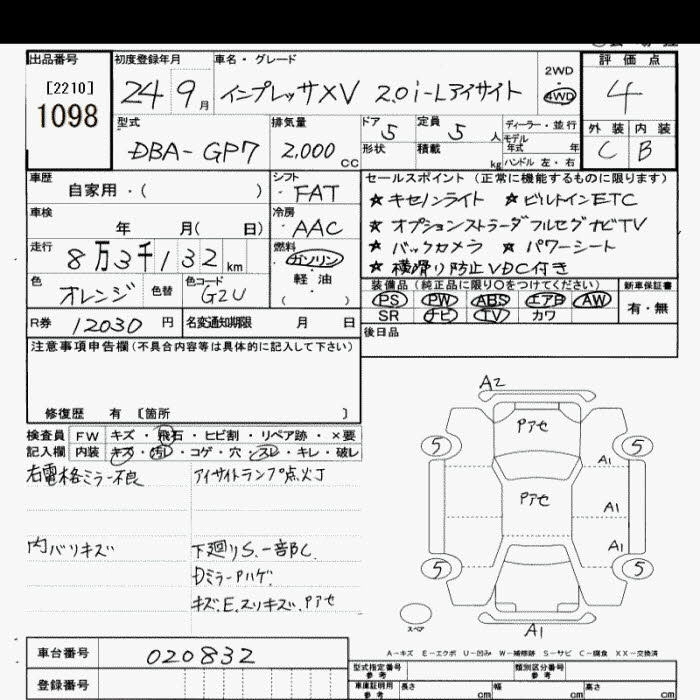 出品番号 初度登録年月 車名・グレード 2WD 評価点
[2210] 24 9月 インプレッサXV 2.0i-Lアイサイト ・ 4WD 4
1098 型式 排気量 ドア 5 定員 5人 ディーラー・並行 外装 内装
DBA-GP7 2,000cc 形状 積載 kg モデル年式 年 ハンドル 左・右 C B
車歴 自家用・( ) シフト FAT セールスポイント(正常に機能するものに限ります)
★キセノンライト ★ビルトインETC
車検 年 月( 日) 冷房 AAC ★オプションストラーダフルセグナビTV
走行 8万3千132km 燃料 ガソリン ★バックカメラ ★パワーシート
・ ★横滑り防止VDC付き
色 オレンジ 色替 色コード G2U 軽油 装備品(純正品に限り○をつけてください) 新車保証書
( ) PS PW ABS エアB AW 有・無
R券 12030円 名変通知期限 月 日 SR ナビ TV カワ
注意事項申告欄(不具合内容等は具体的に記入して下さい) 後日品
修復歴 有 〔箇所 〕
検査員 FW キズ・飛石・ヒビ割・リペア跡・×要
記入欄 内装 キズ・汚レ・コゲ・穴・スレ・キレ・破レ
右電格ミラー不良 アイサイトランプ点灯
内バリキズ 下廻りS.一部BC.
Dミラーアハゲ
キズ.E.スリキズ.Pアセ
A2
Pアセ
5 5
A1
Pアセ
A1
A1
5 5
スペア
A1
A-キズ E-エクボ U-凹み W-補修跡 S-サビ C-腐食 XX-交換済
車台番号 020832
型式指定番号 参考 類別区分番号 参考
登録番号 車庫証明用 参考 長さ cm 幅 cm 高さ cm